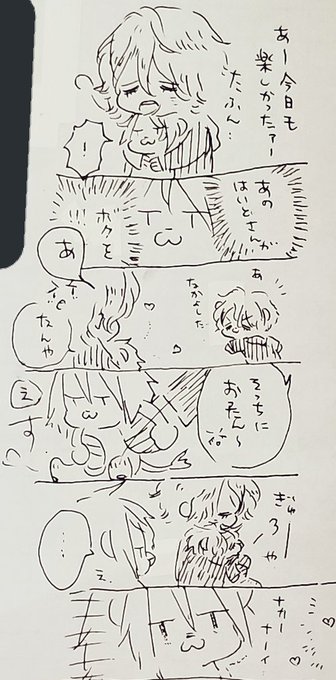 あー今日も
楽しかったァー
たぶん…
！
あの
はいどさんが
ボクを
あ
あ
なかよした
なんや
そっちに
おったん〜
え
す
ぎゅー
ろや
え
…
ナカー
ナーイ